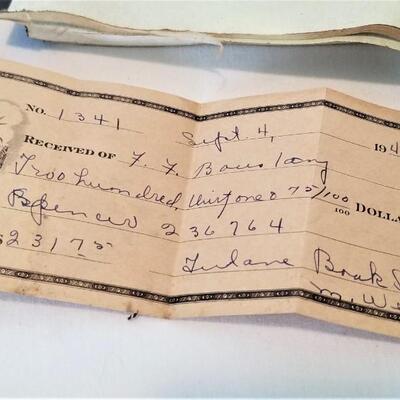 No. 1341 Sept. 4, 194
Received of F. F.
Two hundred thirty one & 75/100 Dolla
236764
$231 75
Tulane Book S
M. W.